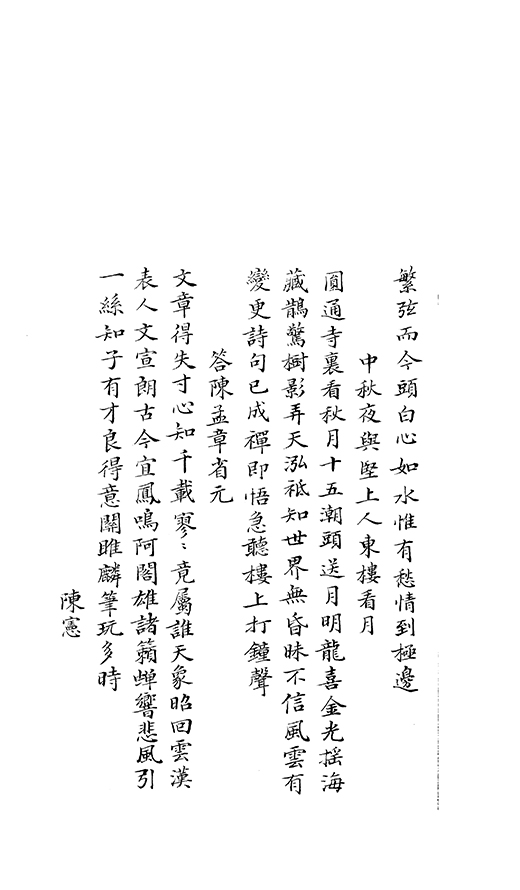 繁弦而今頭白心如水惟有愁情到極邊
中秋夜與堅上人東樓看月
圓通寺裏看秋月十五潮頭送月明龍喜金光搖海
藏鵲驚樹影弄天泓祗知世界無昏昧不信風雲有
變更詩句已成禪即悟急聽樓上打鐘聲
答陳孟章省元
文章得失寸心知千載寥〻竟屬誰天象昭回雲漢
表人文宣朗古今宜鳳鳴阿閣雄諸籟蟬響悲風引
一絲知子有才良得意關雎麟筆玩多時
陳憲